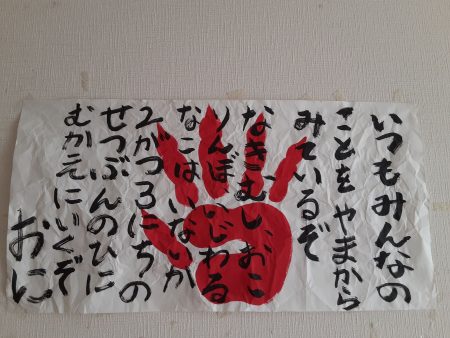 いつもみんなの
ことをやまから
みているぞ
なきむし、おこ
りんぼ、いじわる
なこはいないか
2がつ3にちの
せつぶんのひに
むかえにいくぞ
おに